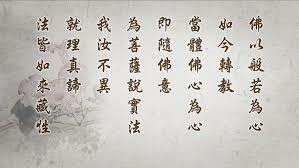 佛以般若為心
如今轉教
當體佛心為
即隨佛意
為善薩說實法
我汝不異
就理真諦
法皆如來藏性